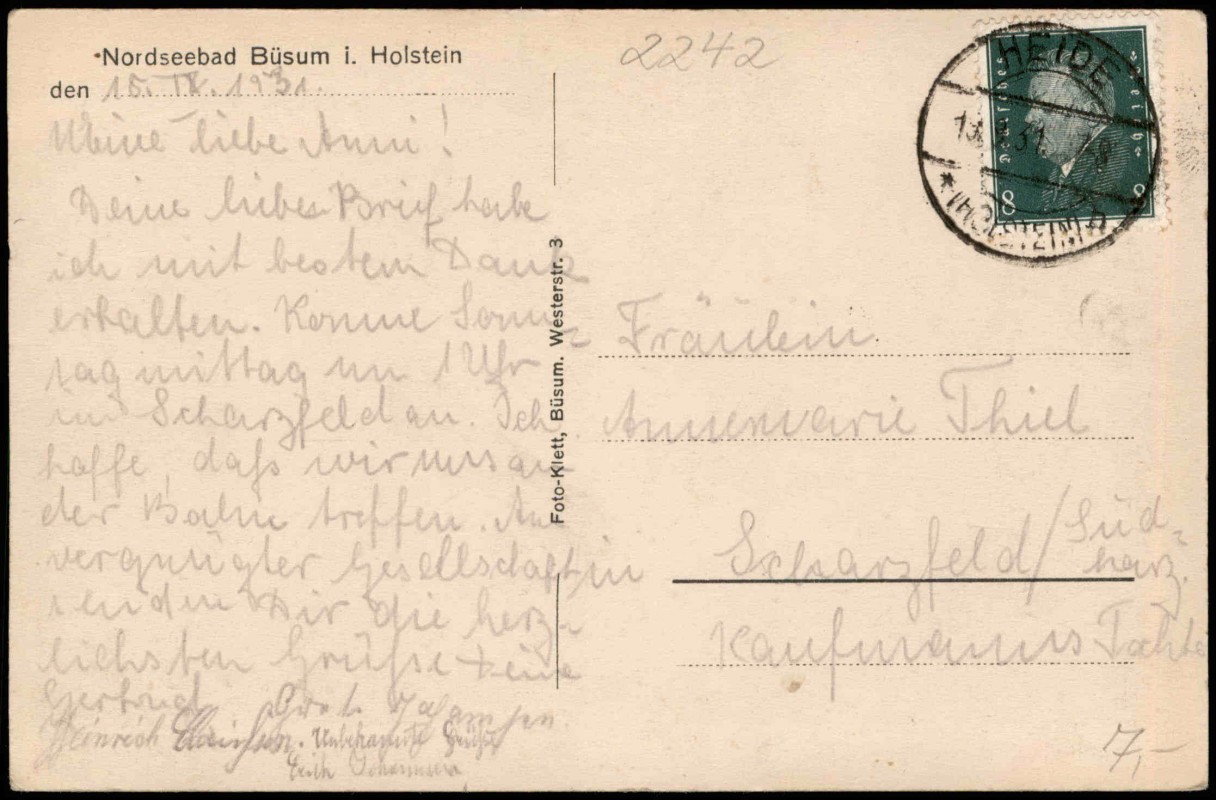 Nordseebad Büsum i. Holstein
den 15. IX. 1931.
Meine liebe Anni!
Deine lieber Brief habe
ich mit bestem Dank
erhalten. Komme Sonn-
tag mittag um 1 Uhr
in Scharzfeld an. Ich
hoffe, daß wir uns an
der Bahn treffen. Au
vergnügter Gesellschaft in
senden Dir die herz-
lichsten Grüße Deine
Gertrud
Heinrich
Unbekannte Grüße
Erich Johannsen
Foto-Klett, Büsum. Westerstr. 3
2242
HEIDE
31
(HOLSTEIN)
Deutsches
Reich
8
8
Fräulein
Annemarie Thiel
Scharzfeld / Süd-
harz.
Kaufmanns Tochte
7,-